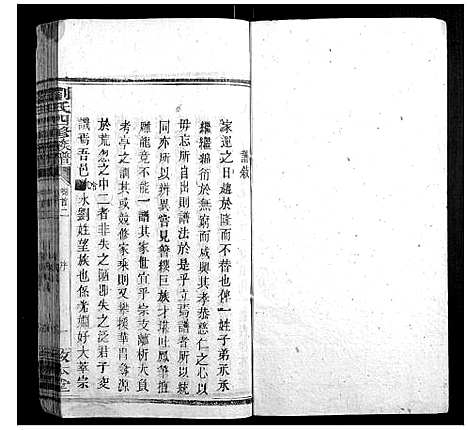 譜敘
家運之日趨於隆而不替也俾一姓子弟承承
繼繼綿衍於無窮而咸興其孝恭慈仁之心以
毋忘所自出則譜法於是乎立焉譜者所以統
同亦所以辨異嘗見簪纓巨族才埒鳳筆擅
雕龍竟不能一譜其家世宜乎宗支離析大負
考亭之訓其或競修家乘則又樊援華胄耷源
於荒忽之中二者非失之陋即失之泛君子交
譏焉吾邑 水劉姓望族也 好大 宗
劉氏四修族譜
卷首二
序
一